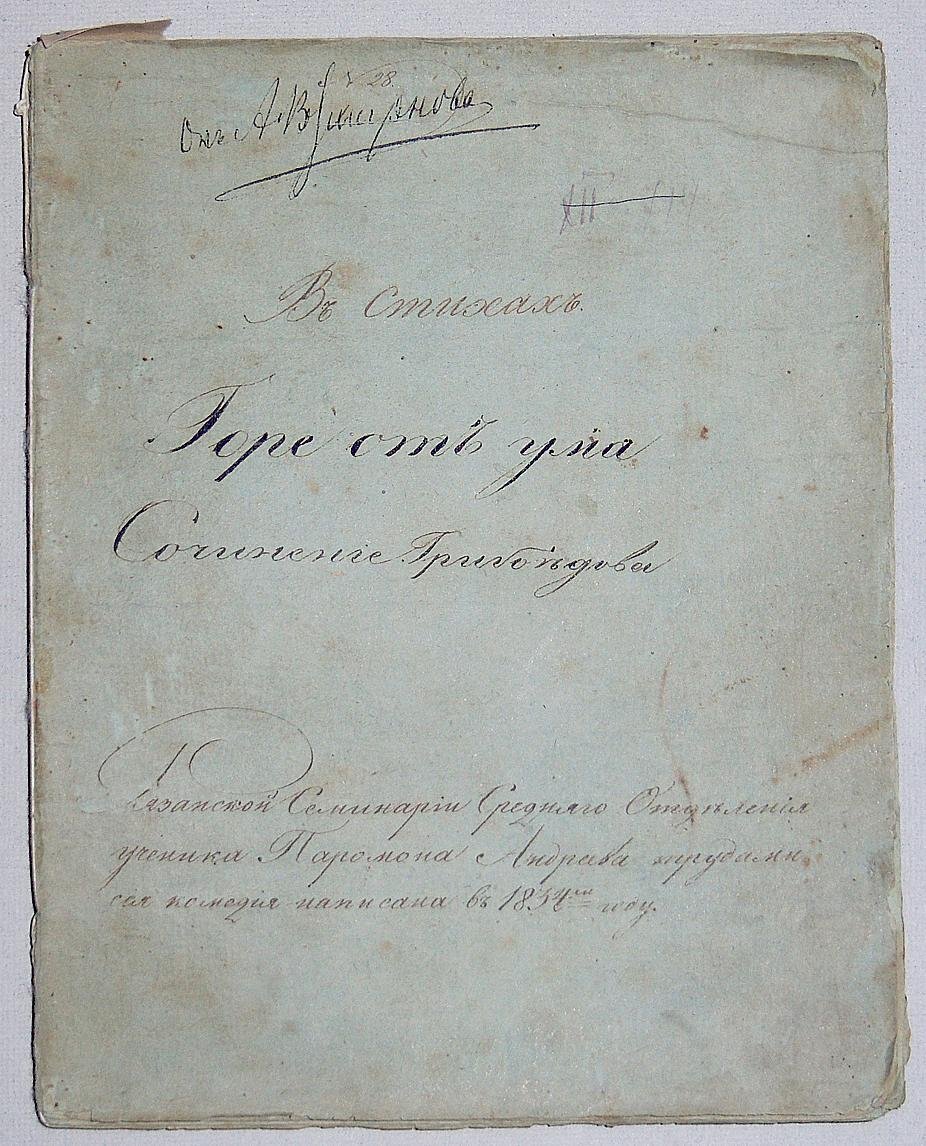 28.
отъ А. В. Смирнова
Въ стихахъ.
Горе отъ ума
Сочиненіе Грибоѣдова
Казанской Семинаріи Средняго Отдѣленія
ученика Парамона Андреева трудами
сея комедія написана въ 1834мъ году.